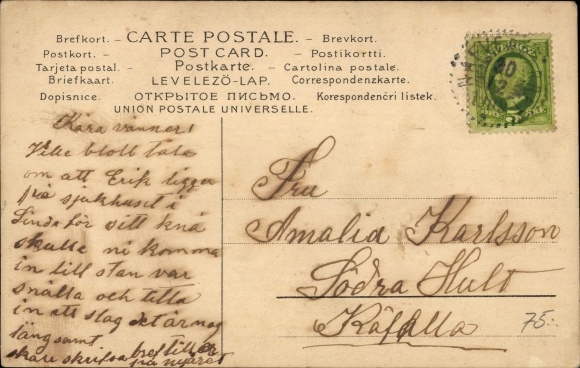 Brefkort. – CARTE POSTALE. – Brevkort.
Postkort. – POST CARD. – Postikortti.
Tarjeta postal. – Postkarte. – Cartolina postale.
Briefkaart. LEVELEZŐ-LAP. Correspondenzkarte.
Dopisnice. ОТКРЫТОЕ ПИСЬМО. Korespondenčni listek.
UNION POSTALE UNIVERSELLE.
Kära vänner!
Ville blott tala
om att Erik ligger
på sjukhuset i
Linde för sitt knä
skulle ni komma
in till stan var
snälla och titta
in ett slag det är nog
långsamt
skall skrifva bref till
på nyåret
Fru
Amalia Karlsson
Södra Hult
Käfalla
75.-